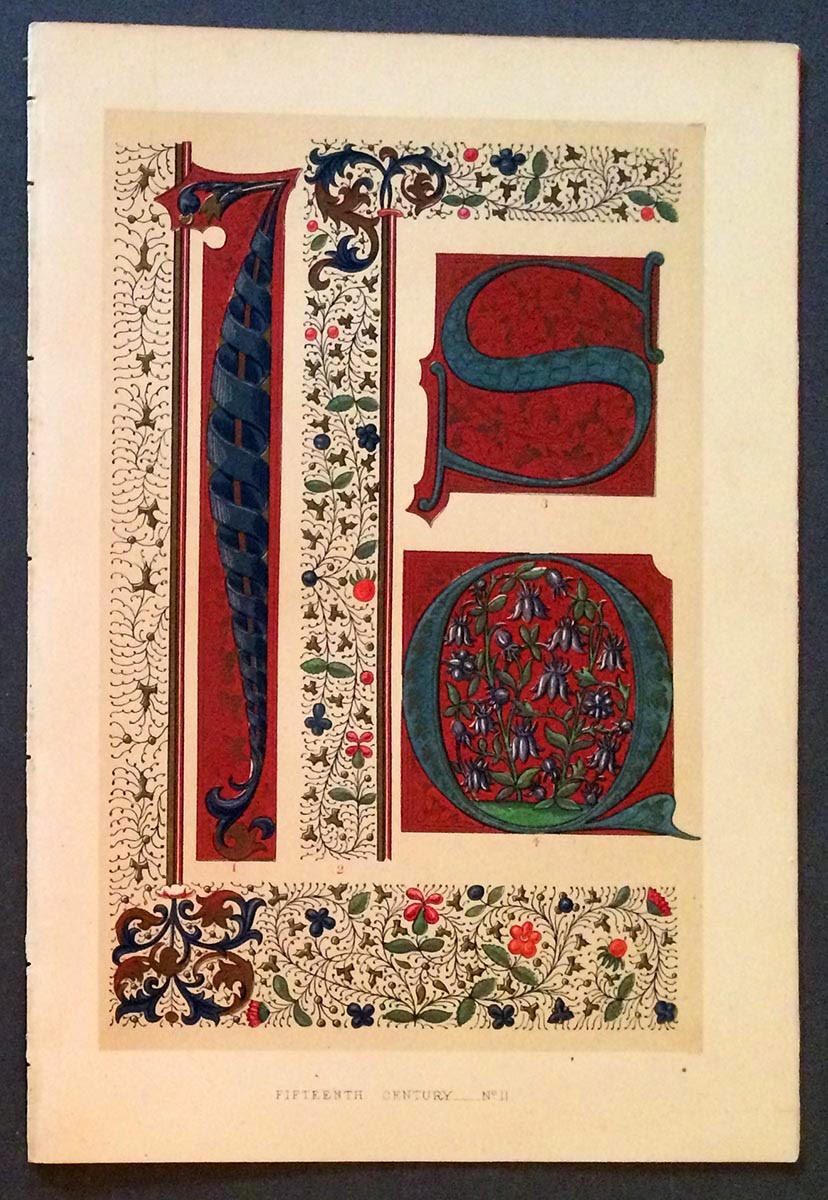 I
S
3
Q
4
1
2
FIFTEENTH CENTURY__Nº 11